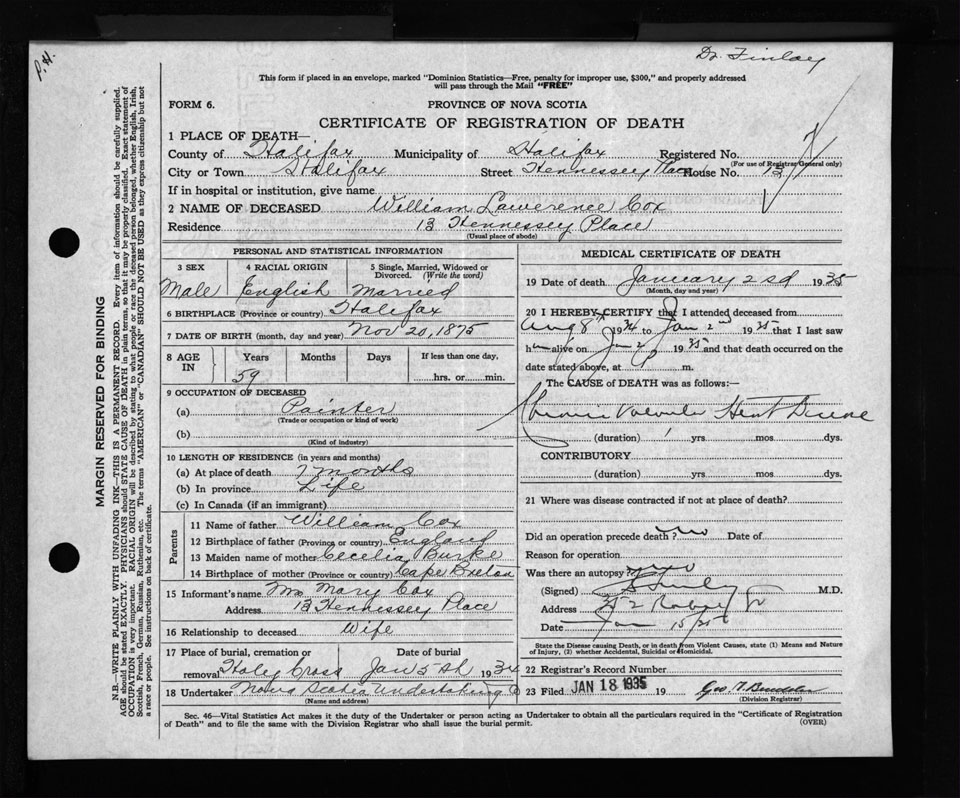 Dr. Finlay
P.H.
This form if placed in an envelope, marked "Dominion Statistics—Free, penalty for improper use, $300," and properly addressed
will pass through the Mail "FREE"
FORM 6.
PROVINCE OF NOVA SCOTIA
CERTIFICATE OF REGISTRATION OF DEATH
1 PLACE OF DEATH—
County of Halifax Municipality of Halifax Registered No.
(For use of Registrar General only)
City or Town Halifax Street Hennessey Place House No. 13
If in hospital or institution, give name
2 NAME OF DECEASED William Lawerence Cox
Residence 13 Hennessey Place
(Usual place of abode)
PERSONAL AND STATISTICAL INFORMATION
3 SEX 4 RACIAL ORIGIN 5 Single, Married, Widowed or
Divorced. (Write the word)
Male English Married
6 BIRTHPLACE (Province or country) Halifax
7 DATE OF BIRTH (month, day and year) Nov 20, 1875
8 AGE IN Years Months Days If less than one day,
59 hrs. or min.
9 OCCUPATION OF DECEASED
(a) Painter
(Trade or occupation or kind of work)
(b)
(Kind of industry)
10 LENGTH OF RESIDENCE (in years and months)
(a) At place of death 7 months
(b) In province Life
(c) In Canada (if an immigrant)
Parents
11 Name of father William Cox
12 Birthplace of father (Province or country) England
13 Maiden name of mother Cecelia Burke
14 Birthplace of mother (Province or country) Cape Breton
15 Informant's name Mrs Mary Cox
Address 13 Hennessey Place
16 Relationship to deceased Wife
17 Place of burial, cremation or Date of burial
removal Holy Cross Jan 5th 1934
18 Undertaker Nova Scotia Undertaking Co
(Name and address)
MEDICAL CERTIFICATE OF DEATH
19 Date of death January 2nd 1935
(Month, day and year)
20 I HEREBY CERTIFY that I attended deceased from
Aug 8 1934 to Jan 2nd 1935 that I last saw
him alive on Jan 2 1935 and that death occurred on the
date stated above, at m.
The CAUSE of DEATH was as follows:—
Chronic Valvular Heart Disease
(duration) 1 yrs mos dys.
CONTRIBUTORY
(duration) yrs mos dys.
21 Where was disease contracted if not at place of death?
Did an operation precede death? no Date of
Reason for operation
Was there an autopsy? no
(Signed) M.D.
Address
Date Jan 15/35
State the Disease causing Death, or in death from Violent Causes, state (1) Means and Nature
of Injury, (2) whether Accidental, Suicidal or Homicidal.
22 Registrar's Record Number
23 Filed JAN 18 1935 19
(Division Registrar)
Sec. 46—Vital Statistics Act makes it the duty of the Undertaker or person acting as Undertaker to obtain all the particulars required in the "Certificate of Registration
of Death" and to file the same with the Division Registrar who shall issue the burial permit.
(OVER)
MARGIN RESERVED FOR BINDING
N.B.—WRITE PLAINLY WITH UNFADING INK—THIS IS A PERMANENT RECORD. Every item of information should be carefully supplied.
AGE should be stated EXACTLY. PHYSICIANS should STATE CAUSE OF DEATH in plain terms, so that it may be properly classified. Exact statement of
OCCUPATION is very important. RACIAL ORIGIN will be described by stating to what people or race the deceased person belonged, whether English, Irish,
Scottish, French, German, Russian, Ruthenian, etc. The terms "AMERICAN" or "CANADIAN" SHOULD NOT BE USED as they express citizenship but not
a race or people. See instructions on back of certificate.